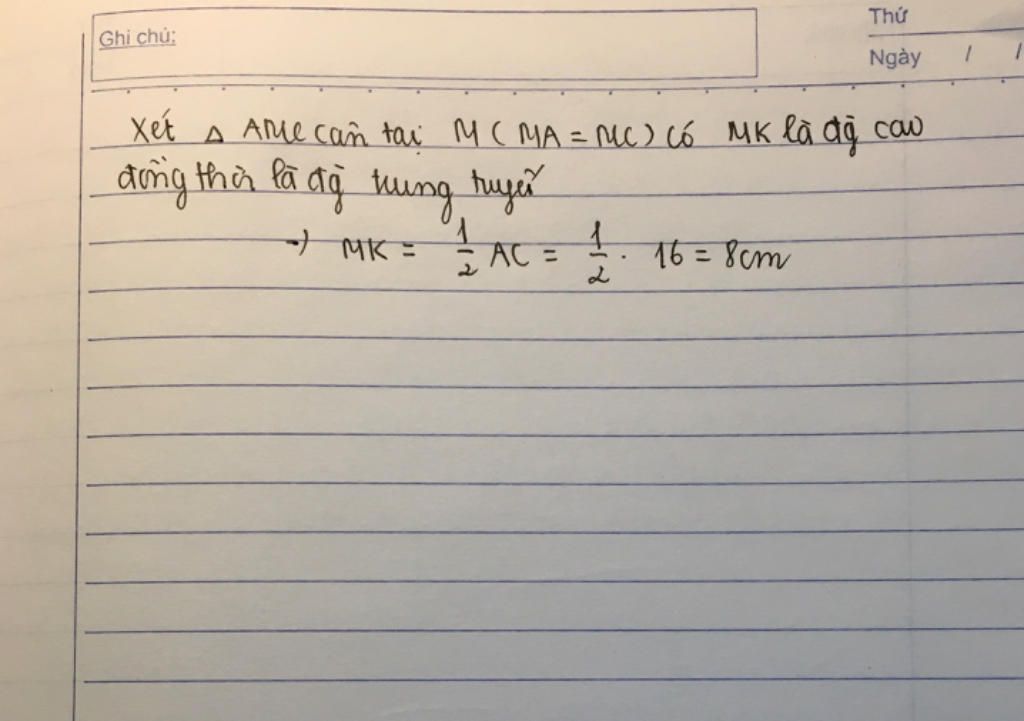 Ghi chú:
Thứ
Ngày / /
Xét △ AMC cân tại M ( MA = MC ) có MK là đg cao
đồng thời là đg trung tuyến
→ MK = 1/2 AC = 1/2 . 16 = 8cm